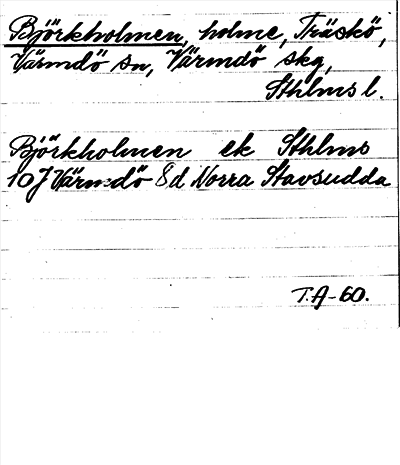 Björkholmen, holme, Träskö,
Värmdö sn, Värmdö skg,
Sthlms l.
Björkholmen ek Sthlms
10J Värmdö 8d Norra Stavsudda
T.A-60.